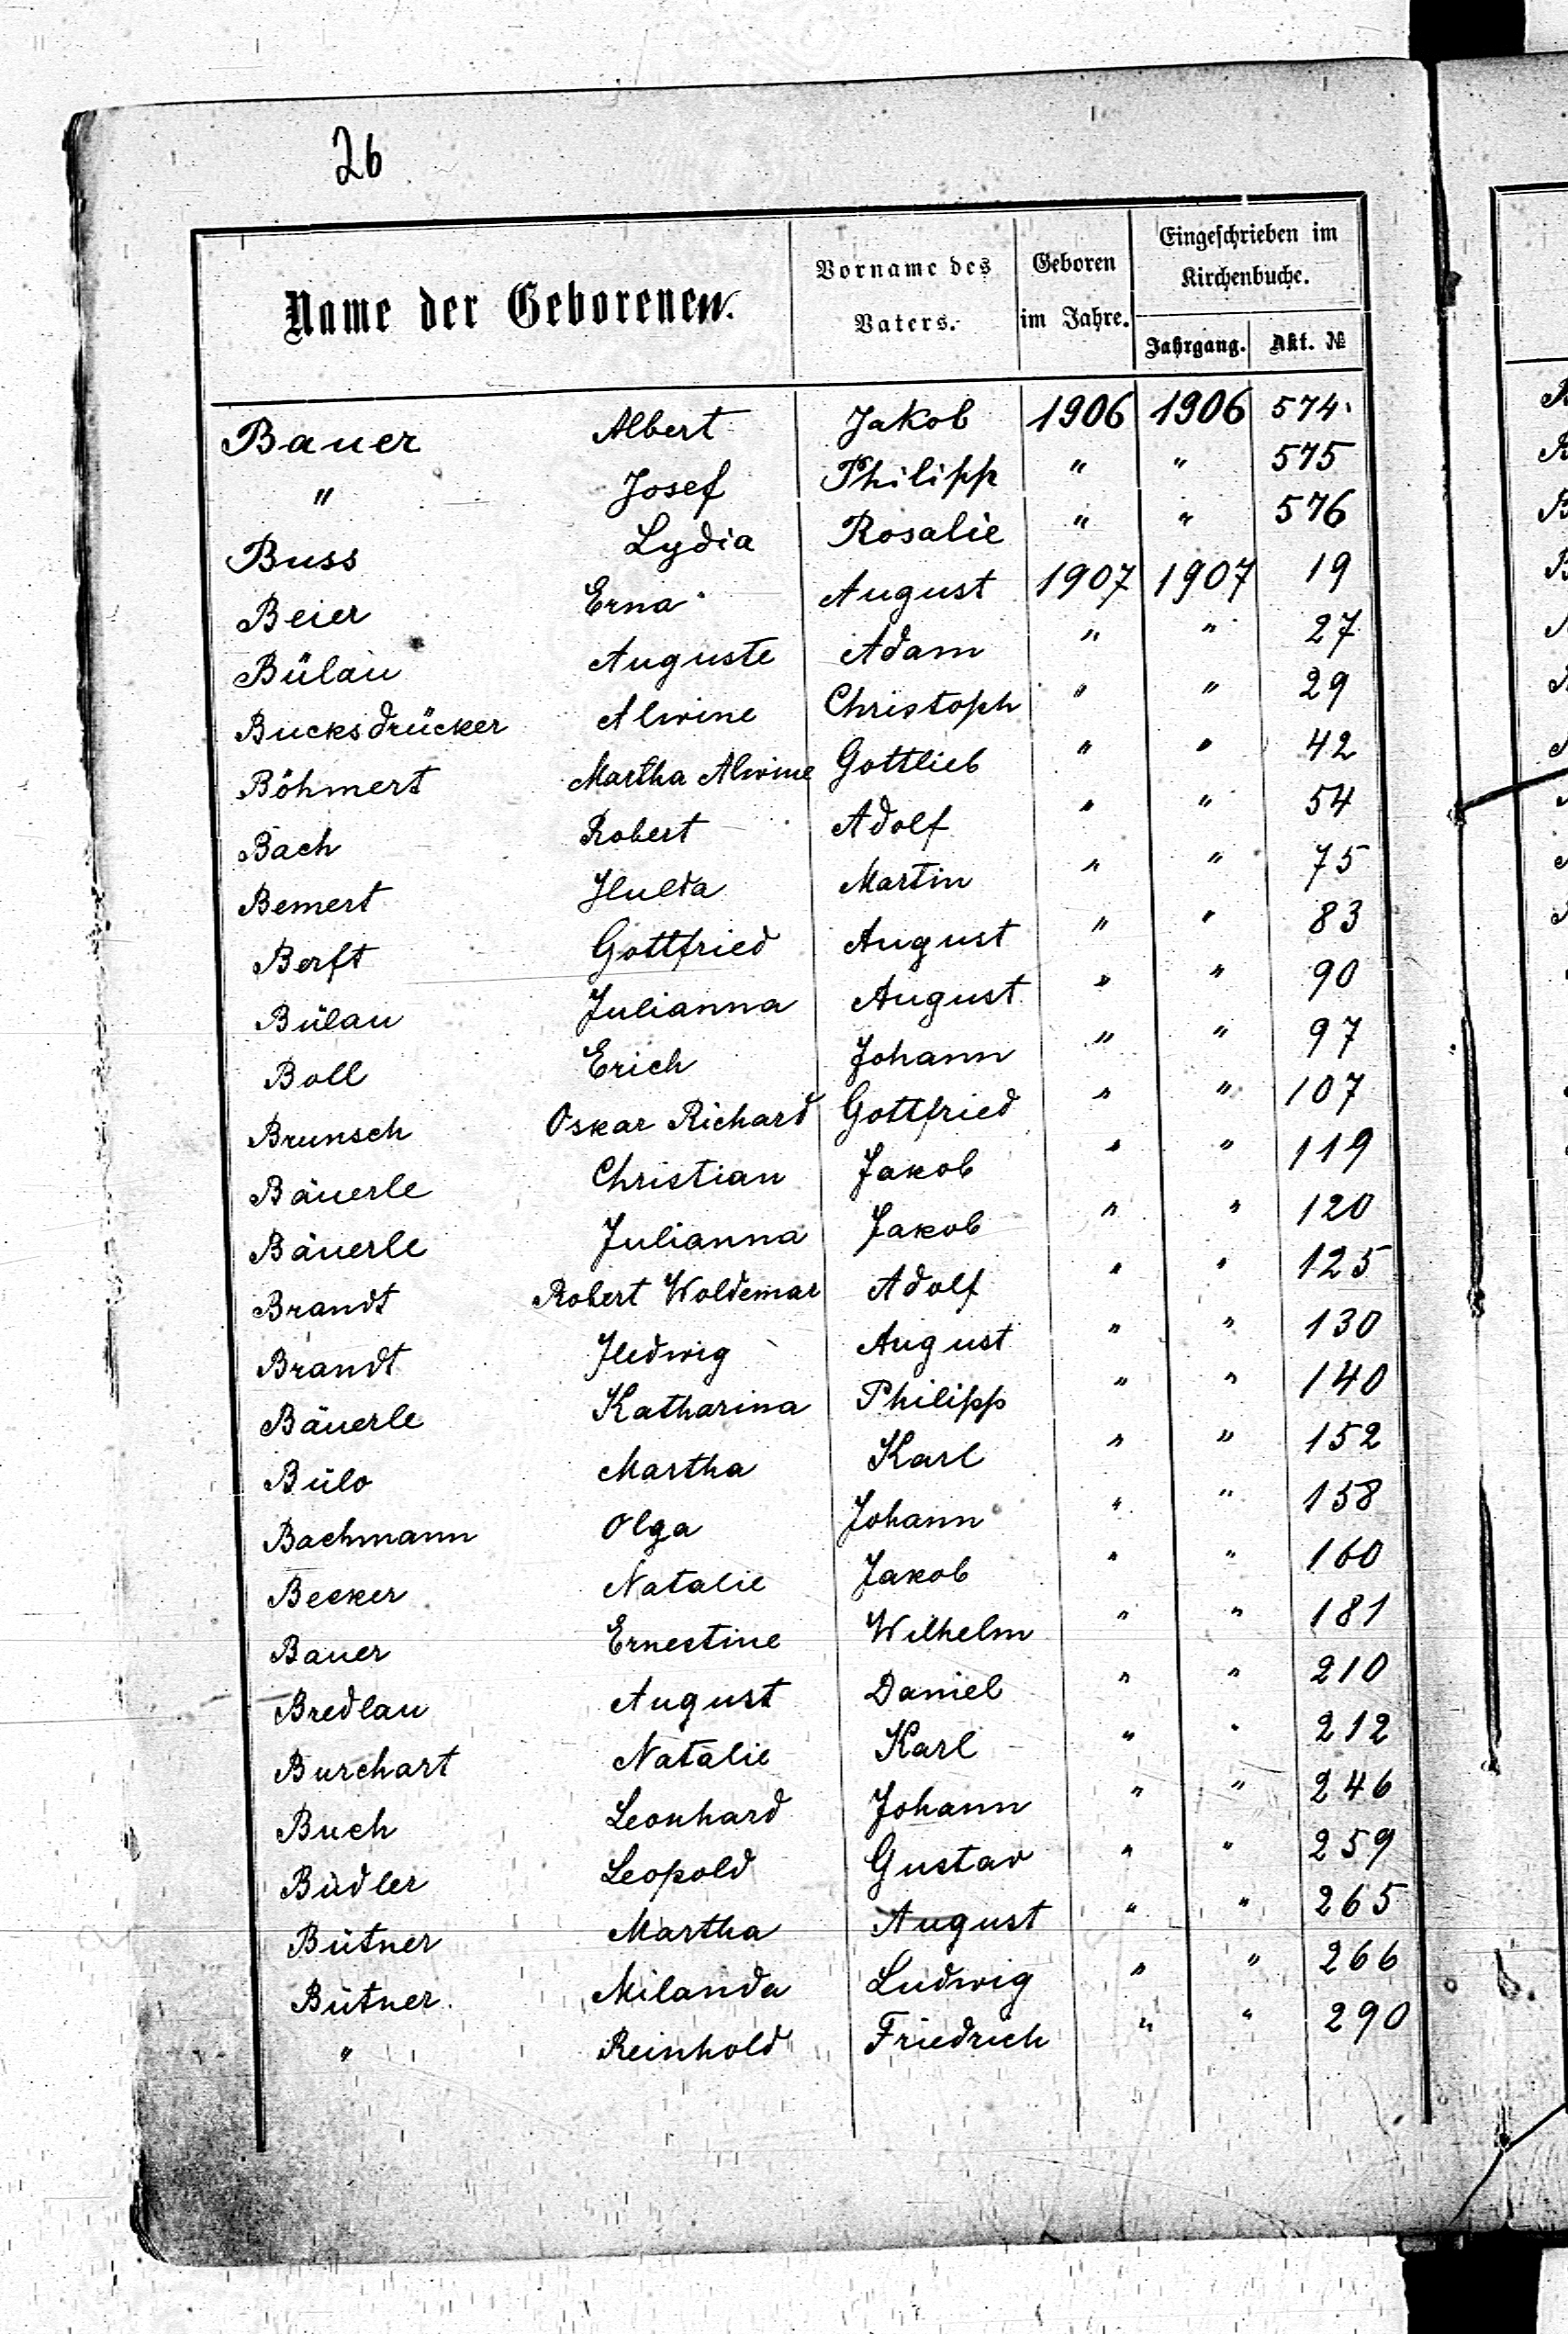 26
Name der Geborenen. Vorname des Vaters. Geboren im Jahre. Eingeschrieben im Kirchenbuche.
Jahrgang. Akt. №
Bauer Albert Jakob 1906 1906 574
" Josef Philipp " " 575
Buss Lydia Rosalie " " 576
Beier Erna August 1907 1907 19
Bülau Auguste Adam " " 27
Bucksdrücker Alwine Christoph " " 29
Böhmert Martha Alwine Gottlieb " " 42
Bach Robert Adolf " " 54
Bemert Hulda Martin " " 75
Berft Gottfried August " " 83
Bülau Julianna August " " 90
Boll Erich Johann " " 97
Brunsch Oskar Richard Gottfried " " 107
Bäuerle Christian Jakob " " 119
Bäuerle Julianna Jakob " " 120
Brandt Robert Woldemar Adolf " " 125
Brandt Hedwig August " " 130
Bäuerle Katharina Philipp " " 140
Bülo Martha Karl " " 152
Bachmann Olga Johann " " 158
Becker Natalie Jakob " " 160
Bauer Ernestine Wilhelm " " 181
Bredlau August Daniel " " 210
Burchart Natalie Karl " " 212
Buch Leonhard Johann " " 246
Büdler Leopold Gustav " " 259
Bütner Martha August " " 265
Bütner Milanda Ludwig " " 266
" Reinhold Friedrich " " 290